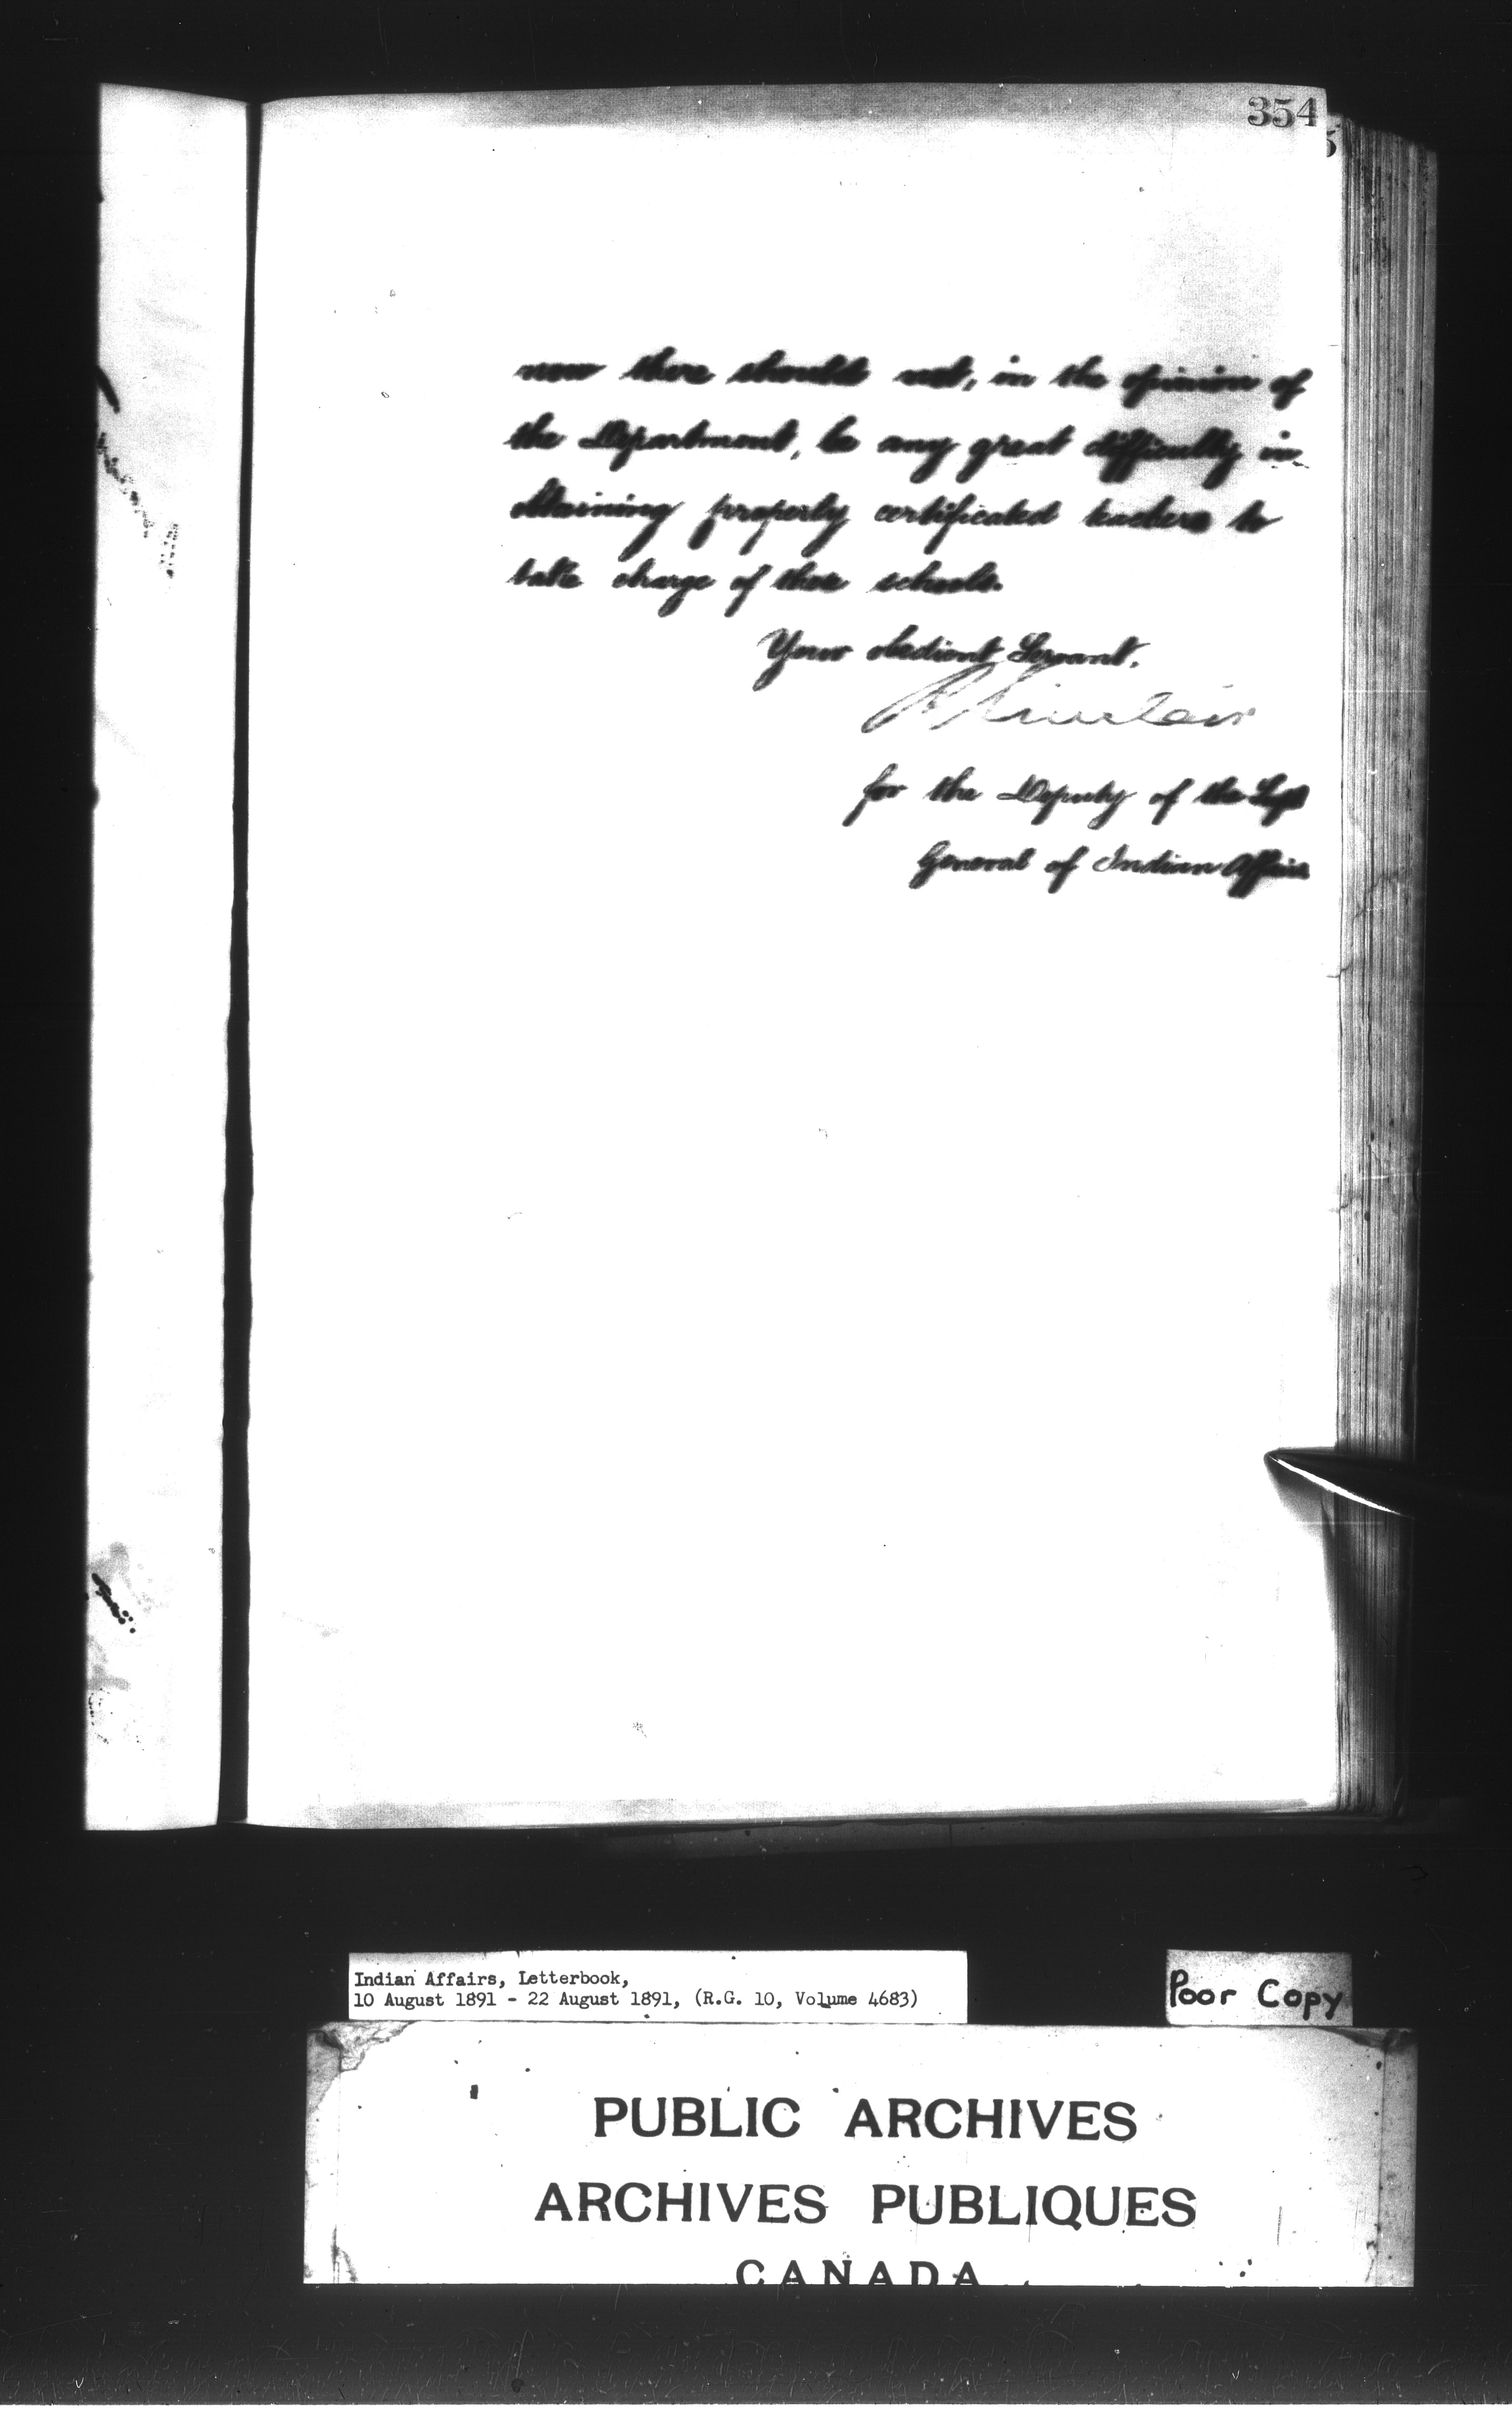 354
5
now there should not, in the opinion of
the Department, be any great difficulty in
obtaining properly certificated teachers to
take charge of these schools.
Your obedient Servant,
Sinclair
for the Deputy of the Supt
General of Indian Affairs
Indian Affairs, Letterbook,
10 August 1891 - 22 August 1891, (R.G. 10, Volume 4683)
Poor Copy
PUBLIC ARCHIVES
ARCHIVES PUBLIQUES
CANADA